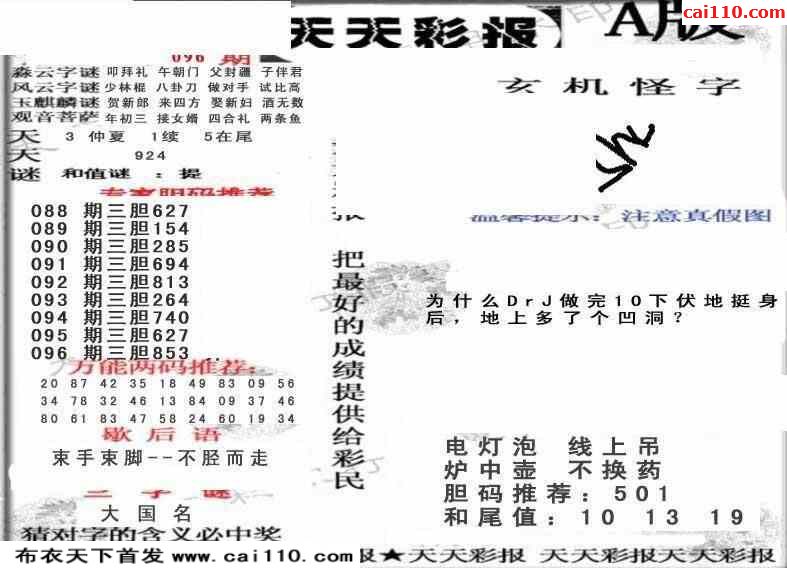 cai110.com
天天彩报】 A版
096 期
森云字谜 叩拜礼 午朝门 父封疆 子伴君
风云字谜 少林棍 八卦刀 做对手 试比高
玉麒麟谜 贺新郎 来四方 娶新妇 酒无数
观音菩萨 年初三 接女婿 四合礼 两条鱼
天 3 仲夏 1续 5在尾
天 924
谜 和值谜 : 提
专家胆码推荐
088 期三胆627
089 期三胆154
090 期三胆285
091 期三胆694
092 期三胆813
093 期三胆264
094 期三胆740
095 期三胆627
096 期三胆853 ..
万能两码推荐:
20 87 42 35 18 49 83 09 56
34 78 32 46 13 84 09 37 46
80 61 83 47 58 24 60 19 34
歇后语
束手束脚--不胫而走
三字谜
大国名
猜对字的含义必中奖
把最好的成绩提供给彩民
玄机怪字
温馨提示: 注意真假图
为什么DrJ做完10下伏地挺身
后，地上多了个凹洞？
电灯泡 线上吊
炉中壶 不换药
胆码推荐: 501
和尾值: 10 13 19
布衣天下首发 www.cai110.com 报★天天彩报 天天彩报天天彩报